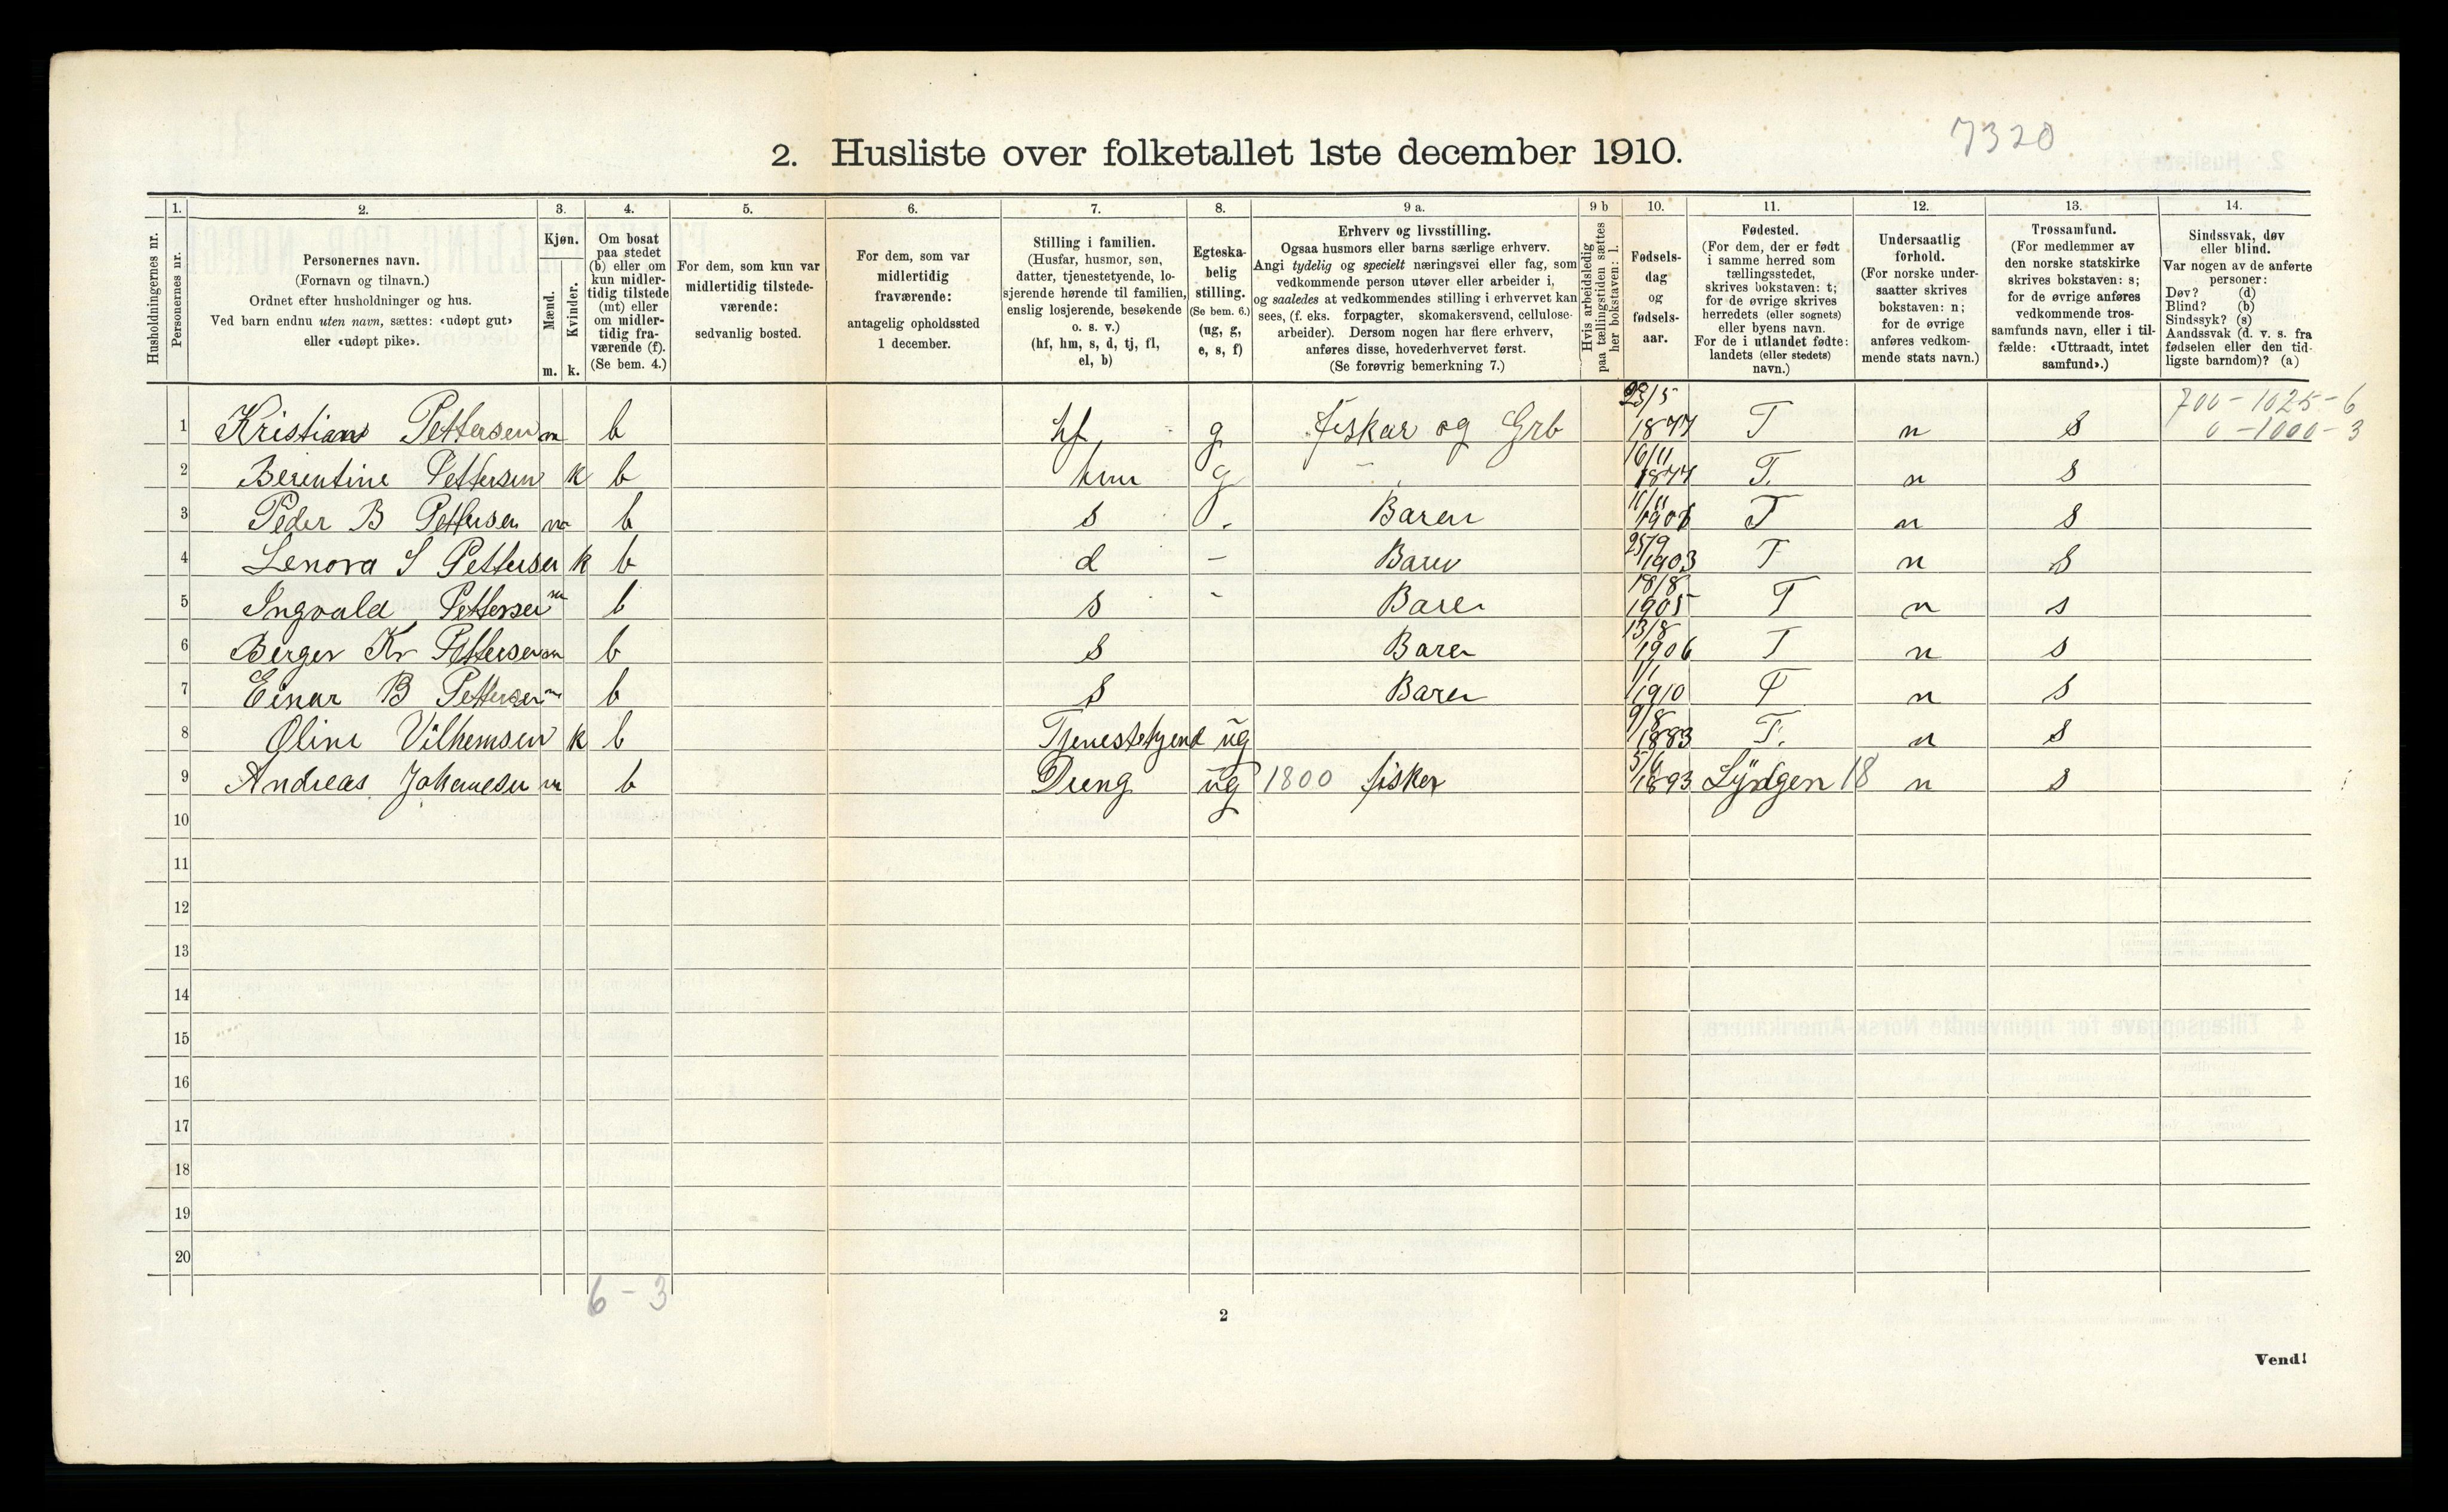 7320
2. Husliste over folketallet 1ste december 1910.
Husholdningernes nr.
1.
Personernes nr.
2.
Personernes navn.
(Fornavn og tilnavn.)
Ordnet efter husholdninger og hus.
Ved barn endnu uten navn, sættes: «udøpt gut»
eller «udøpt pike».
3.
Kjøn.
Mænd.
Kvinder.
m. k.
4.
Om bosat
paa stedet
(b) eller om
kun midler-
tidig tilstede
(mt) eller
om midler-
tidig fra-
værende (f).
(Se bem. 4.)
5.
For dem, som kun var
midlertidig tilstede-
værende:
sedvanlig bosted.
6.
For dem, som var
midlertidig
fraværende:
antagelig opholdssted
1 december.
7.
Stilling i familien.
(Husfar, husmor, søn,
datter, tjenestetyende, lo-
sjerende hørende til familien,
enslig losjerende, besøkende
o. s. v.)
(hf, hm, s, d, tj, fl,
el, b)
8.
Egteska-
belig
stilling.
(Se bem. 6.)
(ug, g,
e, s, f)
9 a.
Erhverv og livsstilling.
Ogsaa husmors eller barns særlige erhverv.
Angi tydelig og specielt næringsvei eller fag, som
vedkommende person utøver eller arbeider i,
og saaledes at vedkommendes stilling i erhvervet kan
sees, (f. eks. forpagter, skomakersvend, cellulose-
arbeider). Dersom nogen har flere erhverv,
anføres disse, hovederhvervet først.
(Se forøvrig bemerkning 7.)
9 b
Hvis arbeidsledig
paa tællingstiden sættes
her bokstaven: l.
10.
Fødsels-
dag
og
fødsels-
aar.
11.
Fødested.
(For dem, der er født
i samme herred som
tællingsstedet,
skrives bokstaven: t;
for de øvrige skrives
herredets (eller sognets)
eller byens navn.
For de i utlandet fødte:
landets (eller stedets)
navn.)
12.
Undersaatlig
forhold.
(For norske under-
saatter skrives
bokstaven: n;
for de øvrige
anføres vedkom-
mende stats navn.)
13.
Trossamfund.
(For medlemmer av
den norske statskirke
skrives bokstaven: s;
for de øvrige anføres
vedkommende tros-
samfunds navn, eller i til-
fælde: «Uttraadt, intet
samfund».)
14.
Sindssvak, døv
eller blind.
Var nogen av de anførte
personer:
Døv? (d)
Blind? (b)
Sindssyk? (s)
Aandssvak (d. v. s. fra
fødselen eller den tid-
ligste barndom)? (a)
700 - 1025 - 6
0 - 1000 - 3
1 Kristian Pettersen m b hf, g fiskar og Grb 23/5 1877 T n s
2 Berentine Pettersen k b hm g - 16/11 1877 T. n s
3 Peder B Pettersen m b s - Baren T n s
4 Lenora S Pettersen k b d - Baren 25/9 1903 T n s
5 Ingvald Pettersen m b s - Baren 18/8 1905 T n s
6 Berger Kr Pettersen m b s Baren 13/8 1906 T n s
7 Einar B Pettersen m b s Baren 1/1 1910 T n s
8 Oline Vilhemsen k b Tjenestetyend ug 9/8 1883 T. n s
9 Andreas Johanesen m b Dreng ug 1800 fisker 5/6 1893 Lyngen 18 n s
10
11
12
13
14
15
16
17
18
19
20
6 - 3
2
Vend!